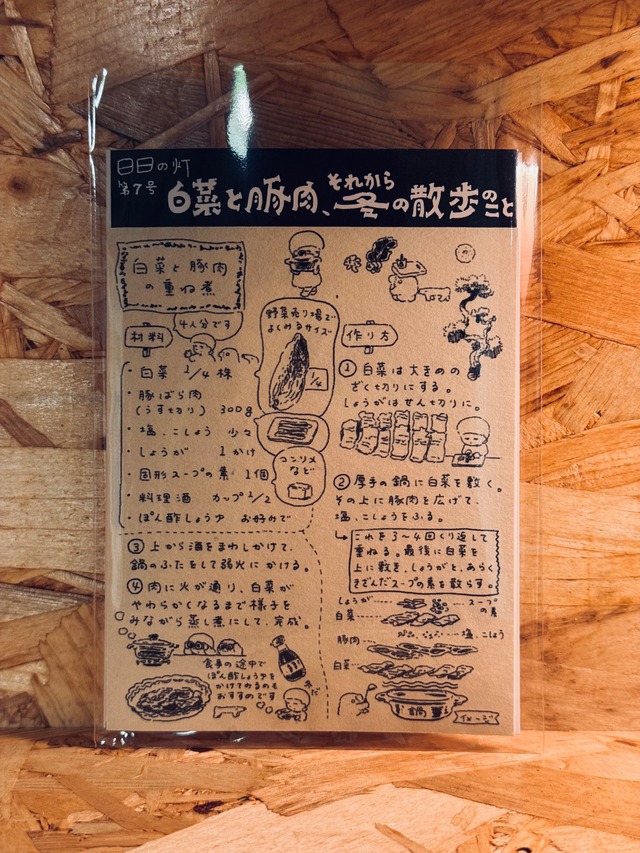 日日の灯
第7号
白菜と豚肉、それから
冬の散歩のこと
白菜と豚肉
の重ね煮
4人分です
材料
・白菜 1/4株
・豚ばら肉
(うす切り) 300g
・塩、こしょう 少々
・しょうが 1かけ
・固形スープの素 1個
・料理酒 カップ1/2
・ぽん酢しょうゆ お好みで
野菜売り場で
よくみるサイズ
1/4
コンソメ
など
作り方
① 白菜は大きめの
ざく切りにする。
しょうがはせん切りに。
② 厚手の鍋に白菜を敷く。
その上に豚肉を広げて、
塩、こしょうをふる。
これを3〜4回くり返して
重ねる。最後に白菜を
上に敷き、しょうがと、あらく
きざんだスープの素を散らす。
③ 上から酒をまわしかけて、
鍋のふたをして弱火にかける。
④ 肉に火が通り、白菜が
やわらかくなるまで様子を
みながら蒸し煮にして、完成。
食事の途中で
ぽん酢しょうゆを
かけてみるのも
おすすめです
しょうが
スープ
の素
白菜
塩、こしょう
豚肉
白菜
鍋
イメージ